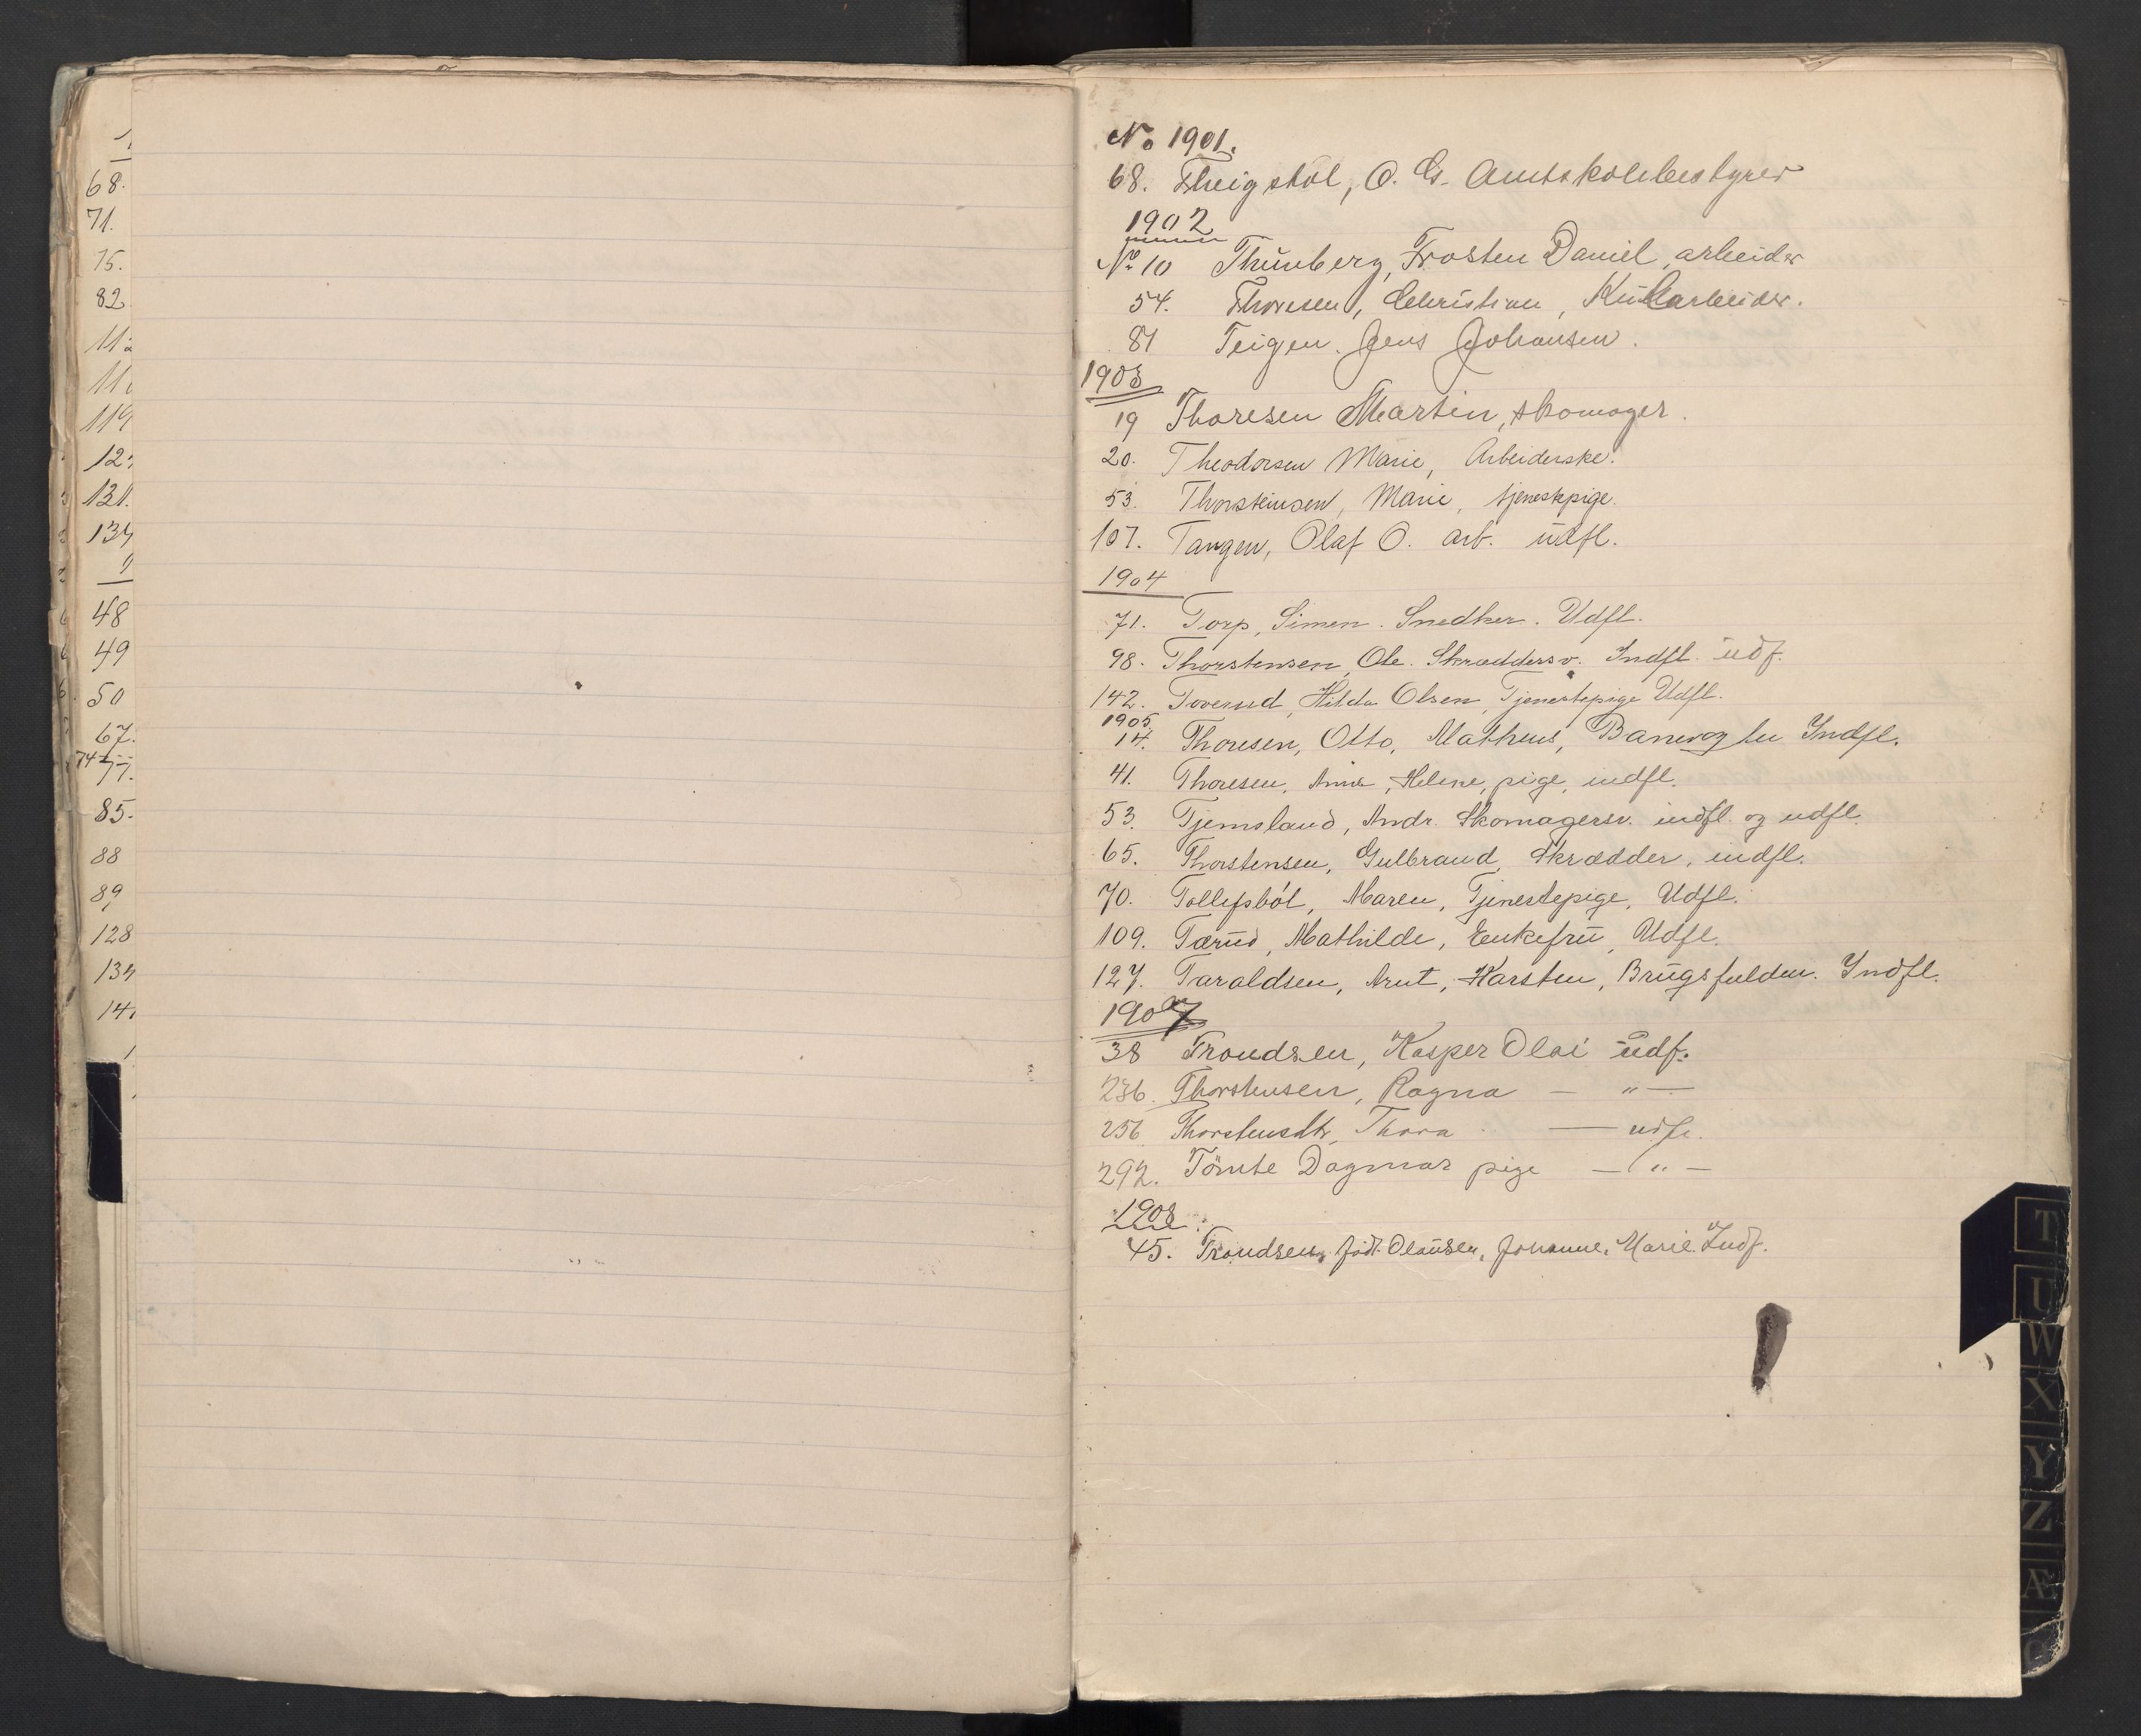 68.
71.
75.
82
11
11
119
12
131.
134
48
49
50
67.
74
77.
85.
88
89,
128
134
14
No 1901.
68. Theigstol, O. G. Amtskolebestyrer
1902
No 10 Thunberg, Frosten Daniel, arbeider
54. Thoresen, Christian, Kularbeider.
81 Teigen. Jens Johansen.
1903
19 Thoresen Martin, skomager.
20. Theodorsen Marie, Arbeiderske.
53. Thorsteinsen, Marie, tjenestepige.
107. Tangen, Olaf O. arb. udfl.
1904
71. Torp, Simen. Snedker. Udfl.
98. Thorstensen, Ole. Skræddersv. Indfl. udf.
142. Toverud, Hilda Olsen, Tjenestepige Udfl.
1905
14. Thoresen, Otto, Matheus, Banevogter Indfl.
41. Thoresen, Anna, Helene, pige, indfl.
53. Tjemsland, Andr. Skomagersv. indfl. og udfl.
65. Thorstensen, Gulbrand, Skrædder, indfl.
70. Tollefsböl, Maren, Tjenestepige, Udfl.
109. Tærud, Mathilde, Enkefru, Udfl.
127. Taraldsen, Arnt, Karsten, Brugsfuldm. Indfl.
1907
38 Trondsen, Kasper Olai udf.
236. Thorstensen, Ragna — " —
256 Thorstensdtr, Thora — udfl.
292. Tömte Dagmar pige — " —
1908.
45. Trondsen, født Olausen, Johanne, Marie. Indf.
T
U
W
X
Y
Z
Æ